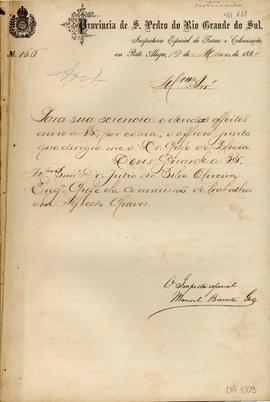 Provincia de S. Pedro do Rio Grande do Sul.
Inspectoria Especial de Terras e Colonisação,
Nº 160 em Porto Alegre, 19 de Maio de 188
Illmo Snr.
Para sua sciencia e devidos effeitos
envio a VS. por copia, o officio junto
que dirigio-me o Dr. Chefe de
Deus Guarde a VS.
Illmo Snr. Dr. Julio da Silva Oliveira
Engº Chefe da Commissão de trabalhos
em Alfredo Chaves.
O Inspector especial
Manoel Barata Góes
BIA 1009